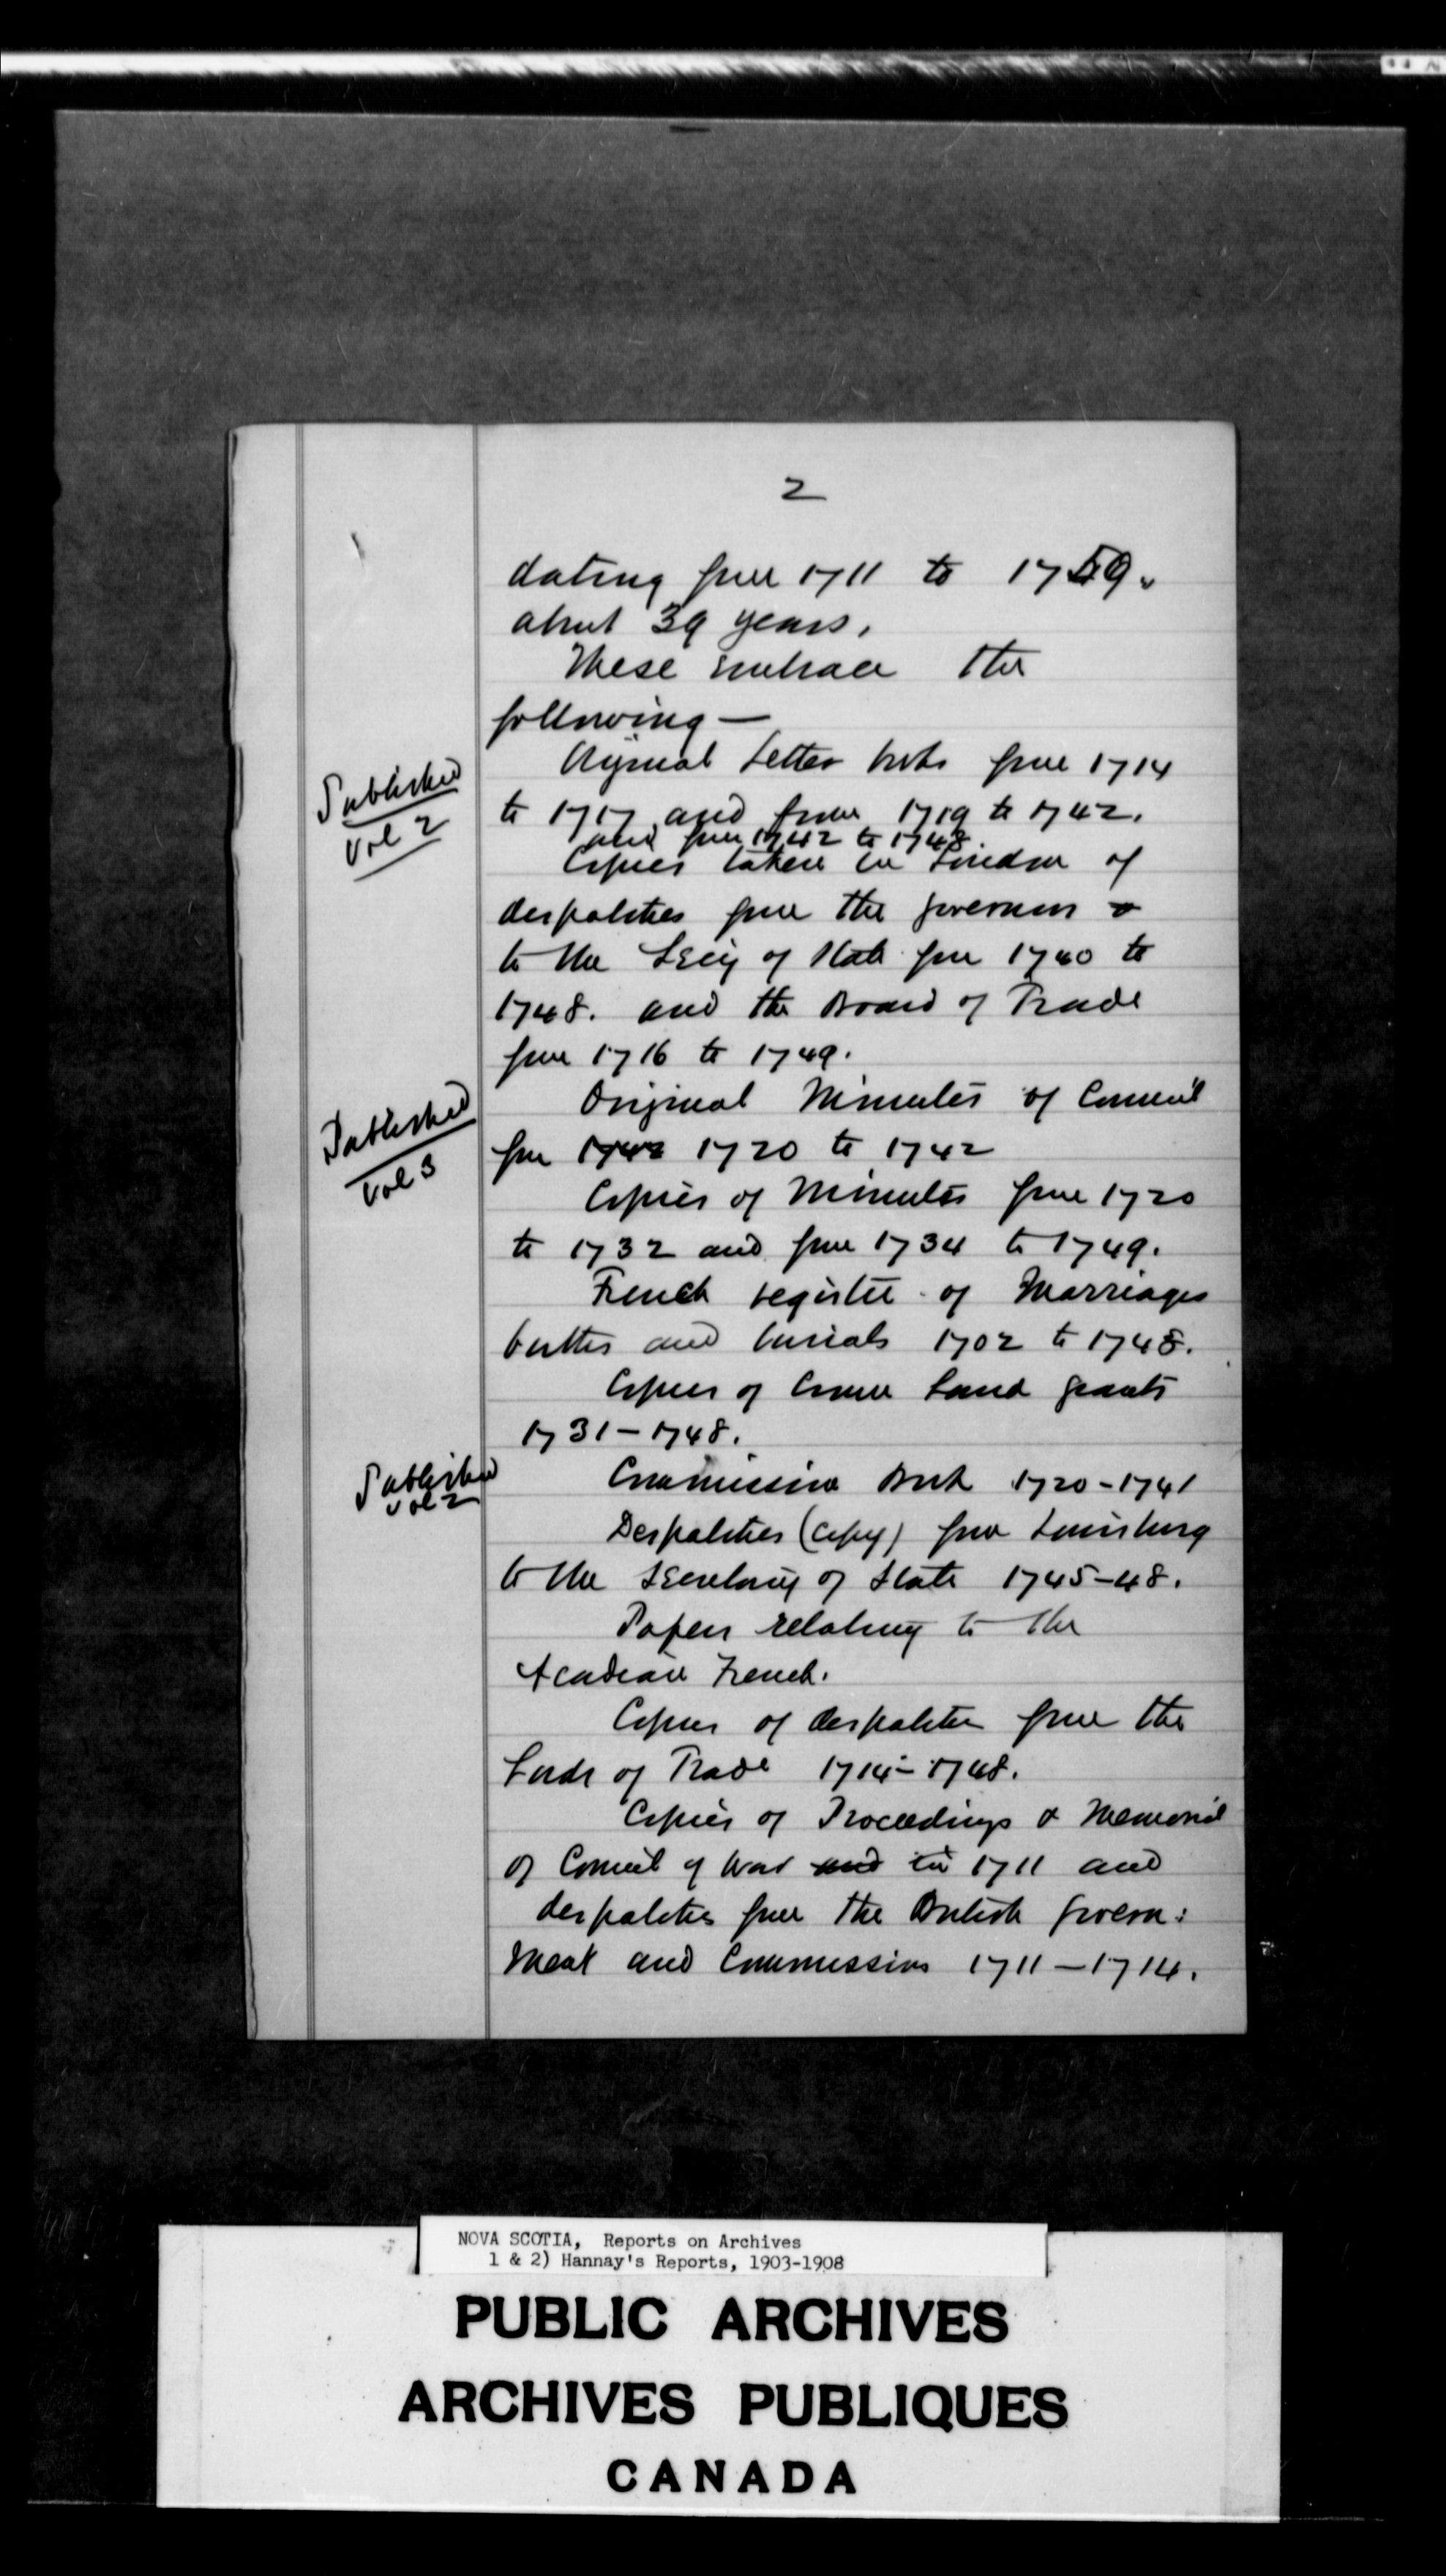 2
dating from 1711 to 1759.
about 39 years.
These embrace the
following —
Original Letter books from 1714
to 1717 and from 1719 to 1742.
and from 1742 to 1748.
Copies taken in London of
despatches from the governors
to the Secy of State from 1740 to
1748. and the Board of Trade
from 1716 to 1749.
Original Minutes of Council
from 1742 1720 to 1742
Copies of Minutes from 1720
to 1732 and from 1734 to 1749.
French register of Marriages
births and burials 1702 to 1748.
Copies of Crown Land grants
1731 – 1748.
Commission Book 1720 – 1741
Despatches (copy) from Louisburg
to the Secretary of State 1745–48.
Papers relating to the
Acadian French.
Copies of despatches from the
Lords of Trade 1714 – 1748.
Copies of Proceedings & Memorial
of Council of War and in 1711 and
despatches from the British Govern:
ment and Commissions 1711 – 1714.
Published
Vol 2
Published
Vol 3
Published
vol 2
NOVA SCOTIA, Reports on Archives
1 & 2) Hannay's Reports, 1903-1908
PUBLIC ARCHIVES
ARCHIVES PUBLIQUES
CANADA